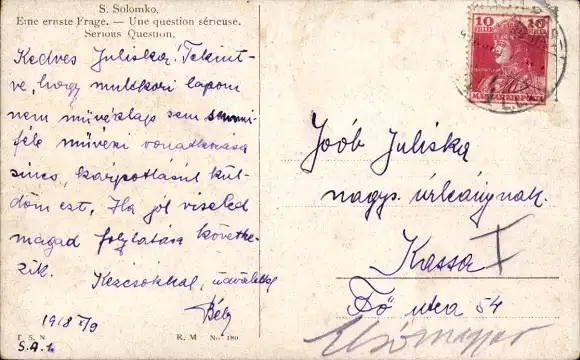 S. Solomko.
Eine ernste Frage. — Une question sérieuse.
Serious Question.
Kedves Juliska! Tekint-
ve, hogy multkori lapom
nem művészlap sem semmi-
féle művészi vonatkozása
nincs, kárpótlásul kül-
döm ezt. Ha jól viseled
magad folytatása követke-
zik. Kézcsókkal, üdvözlettel
Béla
1918 X/9
T. S. N.
S.A.1.
R. M. No 180
10 10
MAGYAR KIR. POSTA
Joób Juliska
nagys. úrleánynak.
Kassa I
Fő utca 54